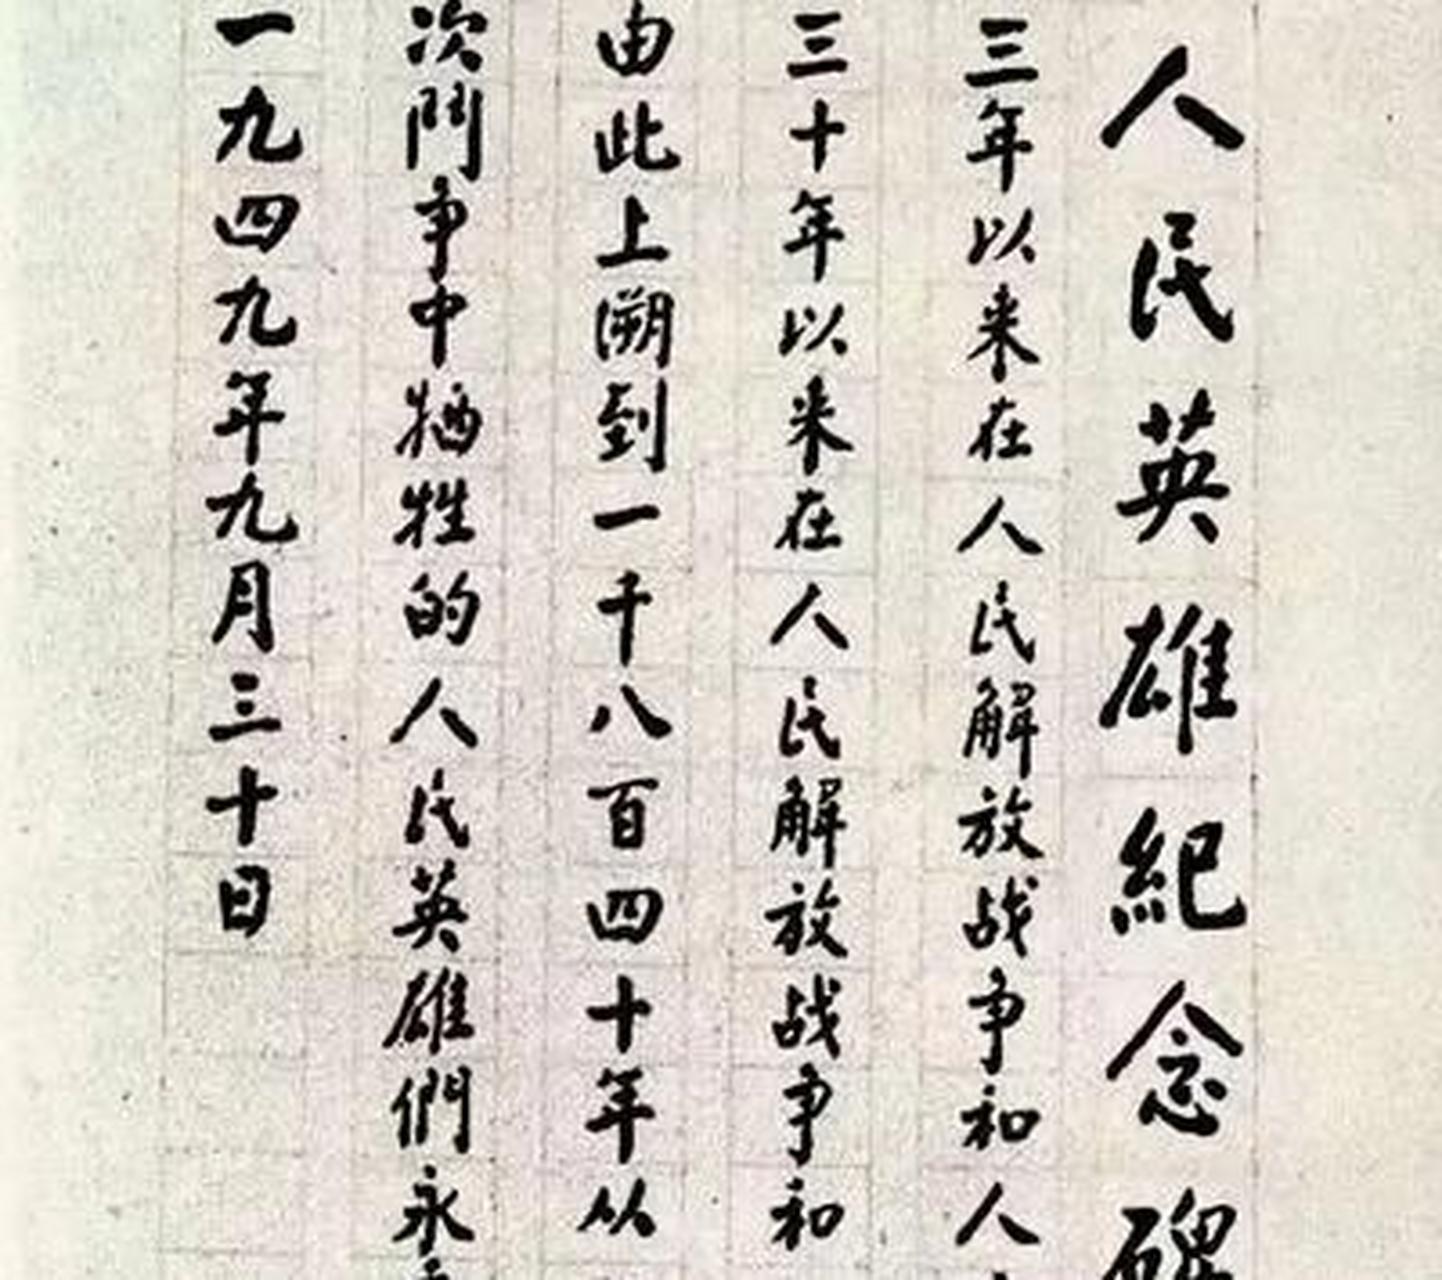 人民英雄紀念碑
三年以来在人民解放战争和人
三十年以来在人民解放战争和
由此上溯到一千八百四十年从
次鬥争中牺牲的人民英雄們永
一九四九年九月三十日